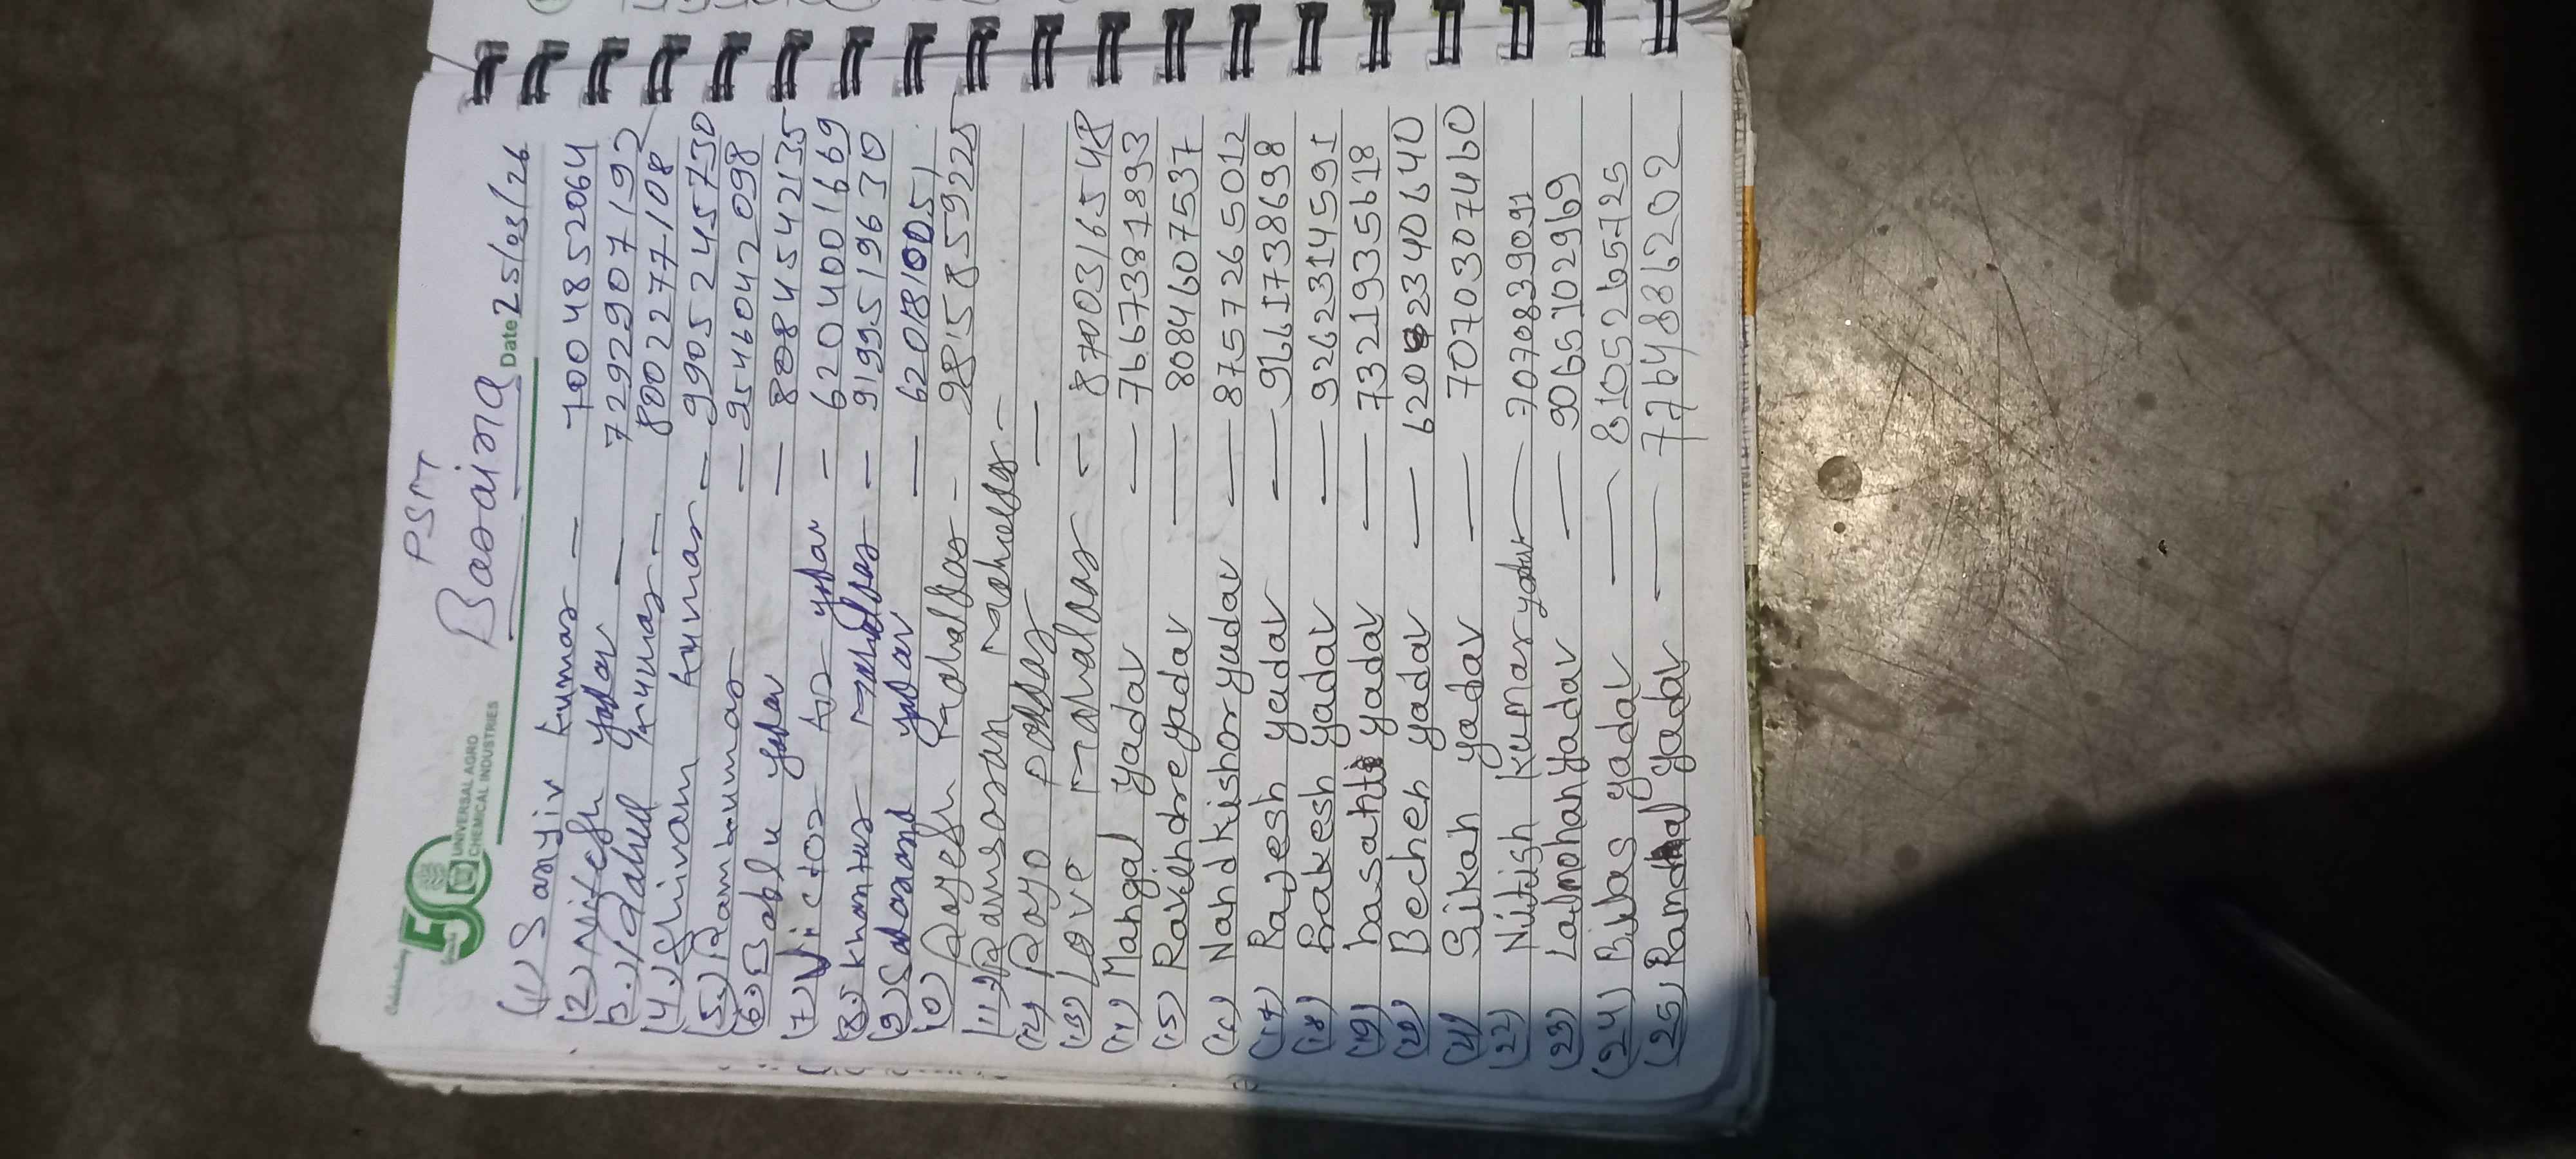 PSM
Baraina
Celebrating
50
UNIVERSAL AGRO
CHEMICAL INDUSTRIES
Date 25/03/26
(1) Sanjiv kumar — 7004852064
(2) Nitesh yadav — 7292907192
3.) Rahul kumar — 8002277108
(4.) Shivam kumar — 9905245730
(5.) Ramkumar — 9546042098
(6) Bablu yadav — 8084542135
(7) Victor kr yadav — 6204001669
(8.) khantar — 9199519630
(9) Sadanand yadav — 6201810051
(10) Rajesh Mahaldar - 9815859225
(11)
(12) Poddar —
(13) Love Mahaldar - 8700316548
(14) Mangal yadav — 7667381893
(15) Ravindre yadav — 8084607537
(16) Nand kishor yadav — 8757265012
(17) Rajesh yadav — 9661738698
(18) Rakesh yadav — 9262314591
(19) basant yadav — 7321935618
(20) Bechen yadav — 6204
(21) Sikan yadav — 7070307460
(22) Nitish kumar yadav — 7070839091
(23) Lalmohan yadav — 9065102969
(24) Bibas yadav — 8105265725
(25) yadav — 7764886202